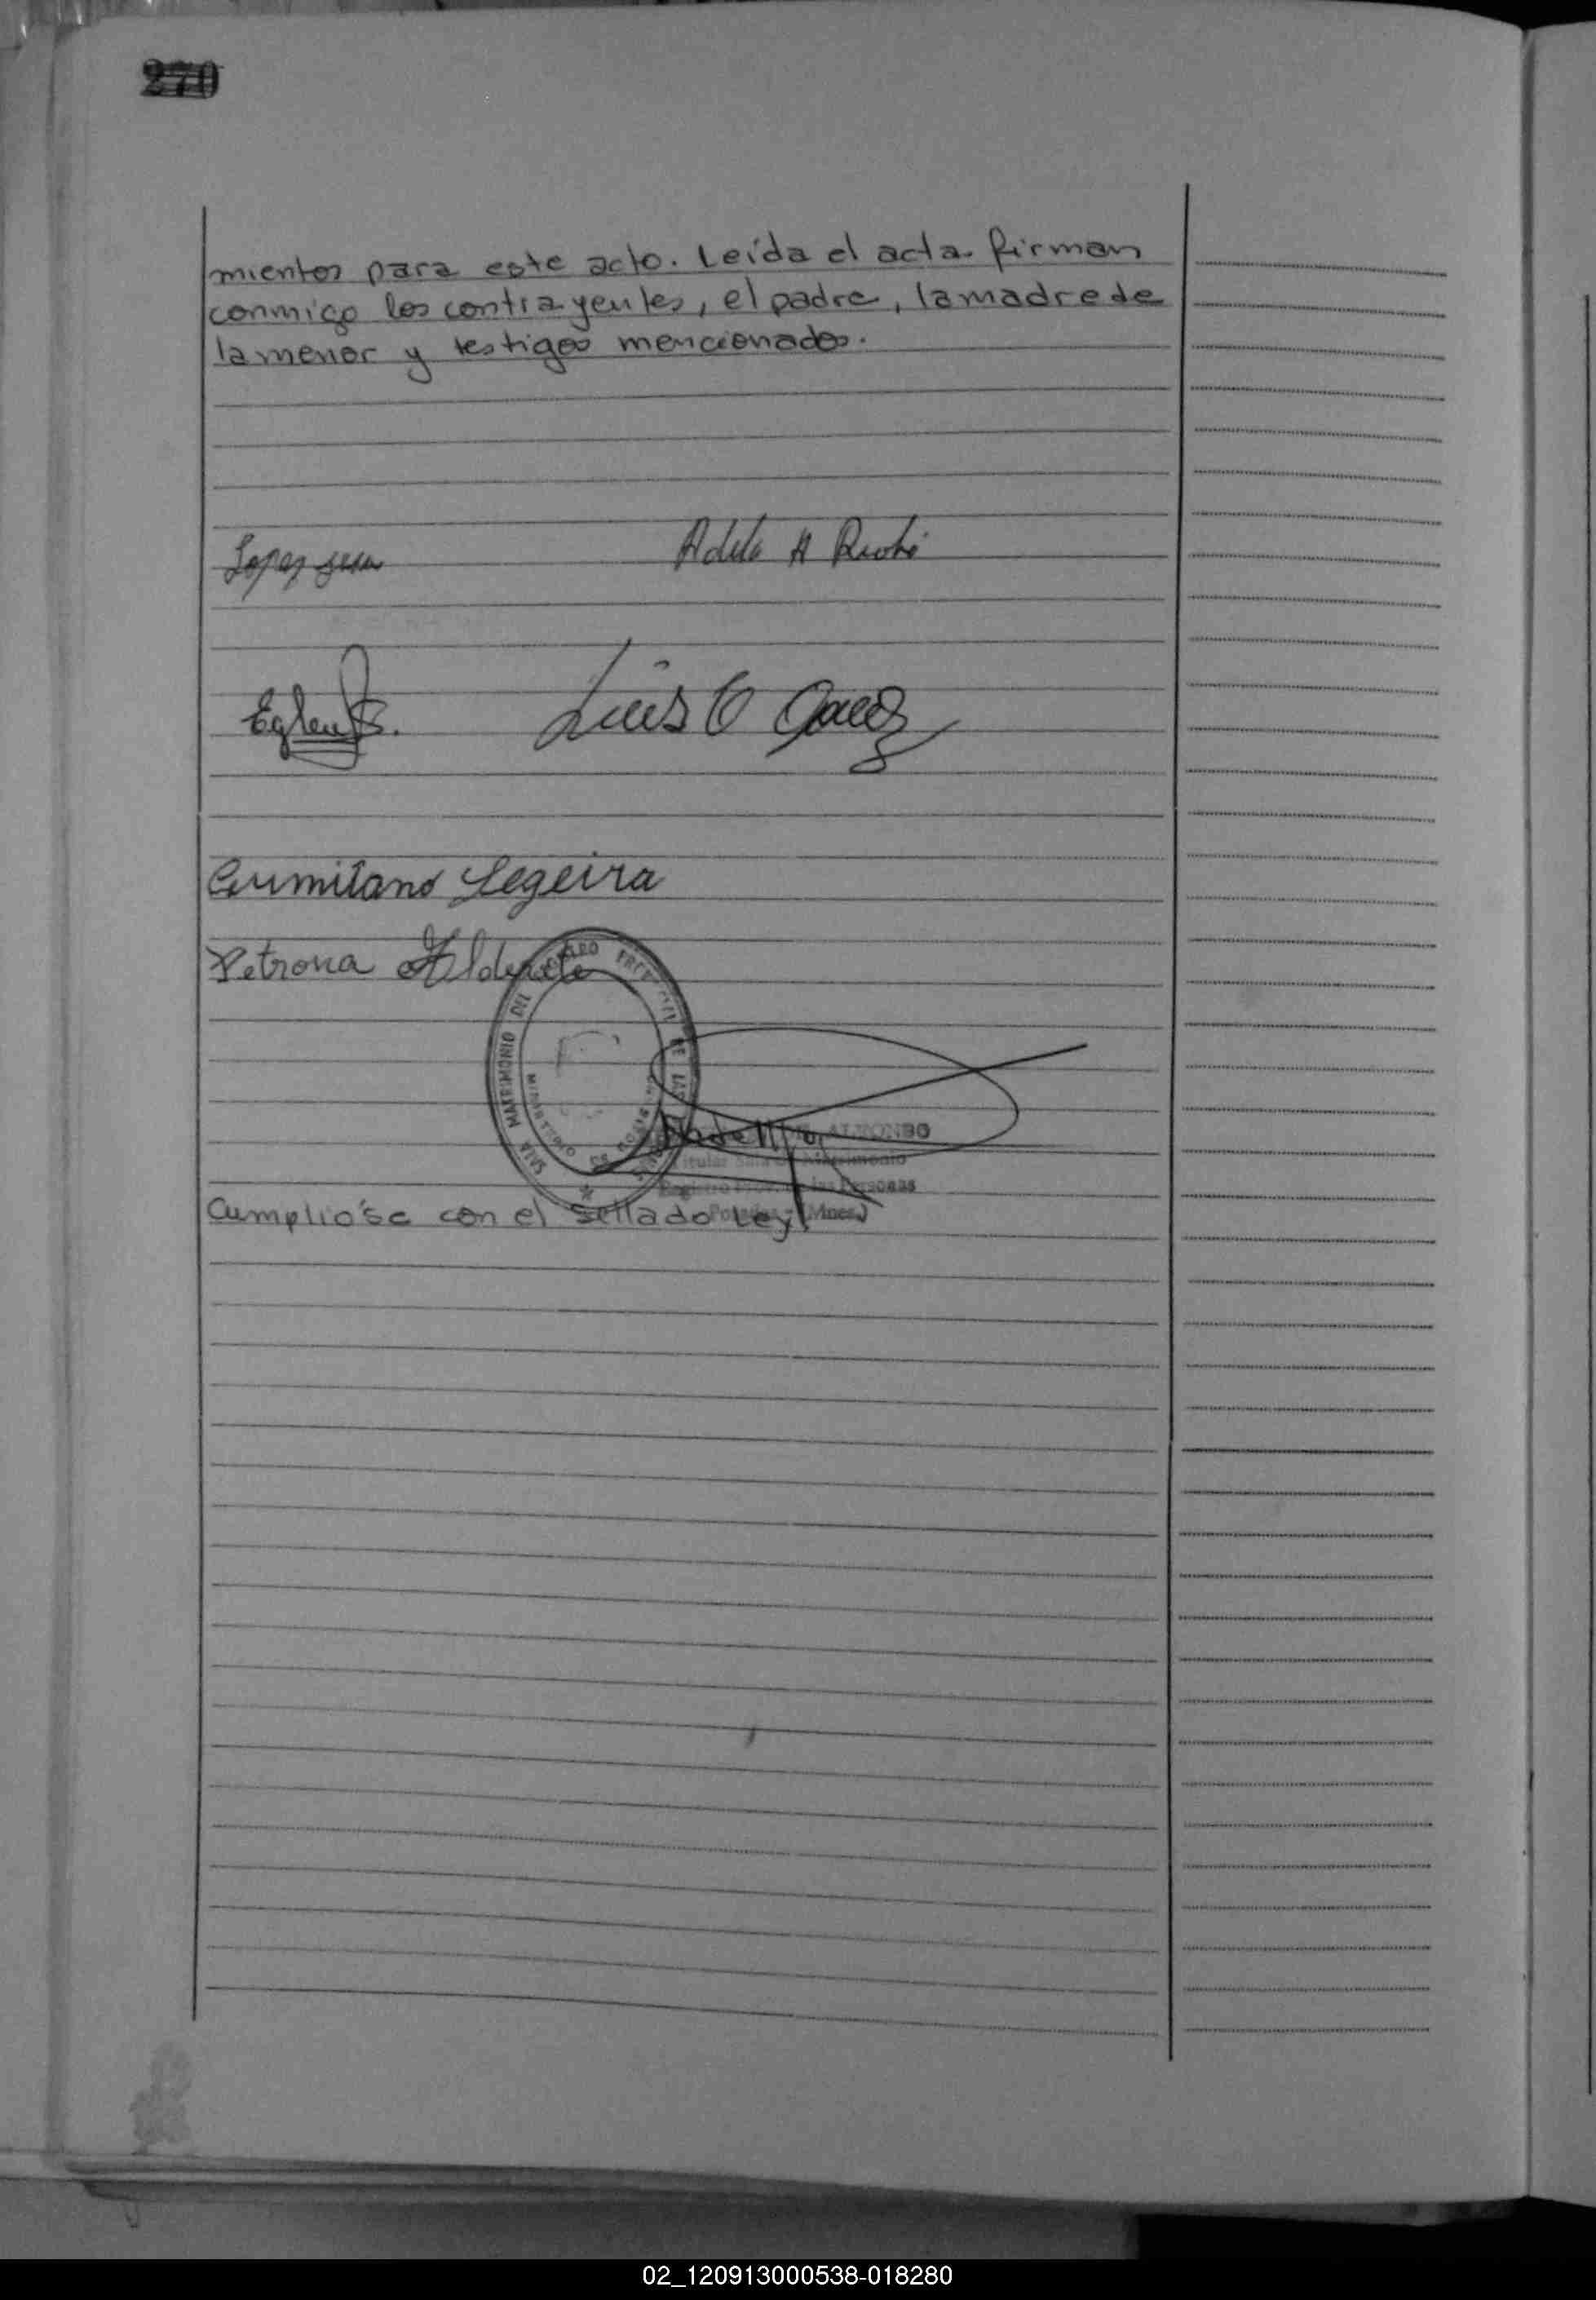 270
mientos para este acto. Leída el acta firman
conmigo los contrayentes, el padre, la madre de
la menor y testigos mencionados.
Lopez
Adela A
Luis O
Segeira
Petrona Alderete
SALA MATRIMONIO DEL REGISTRO PROVINCIAL DE LAS PERSONAS
MINISTERIO DE GOBIERNO
Titular Sala de Matrimonio
Registro Prov. de las Personas
Posadas - (Mnes.)
Cumplióse con el sellado Ley
02_120913000538-018280